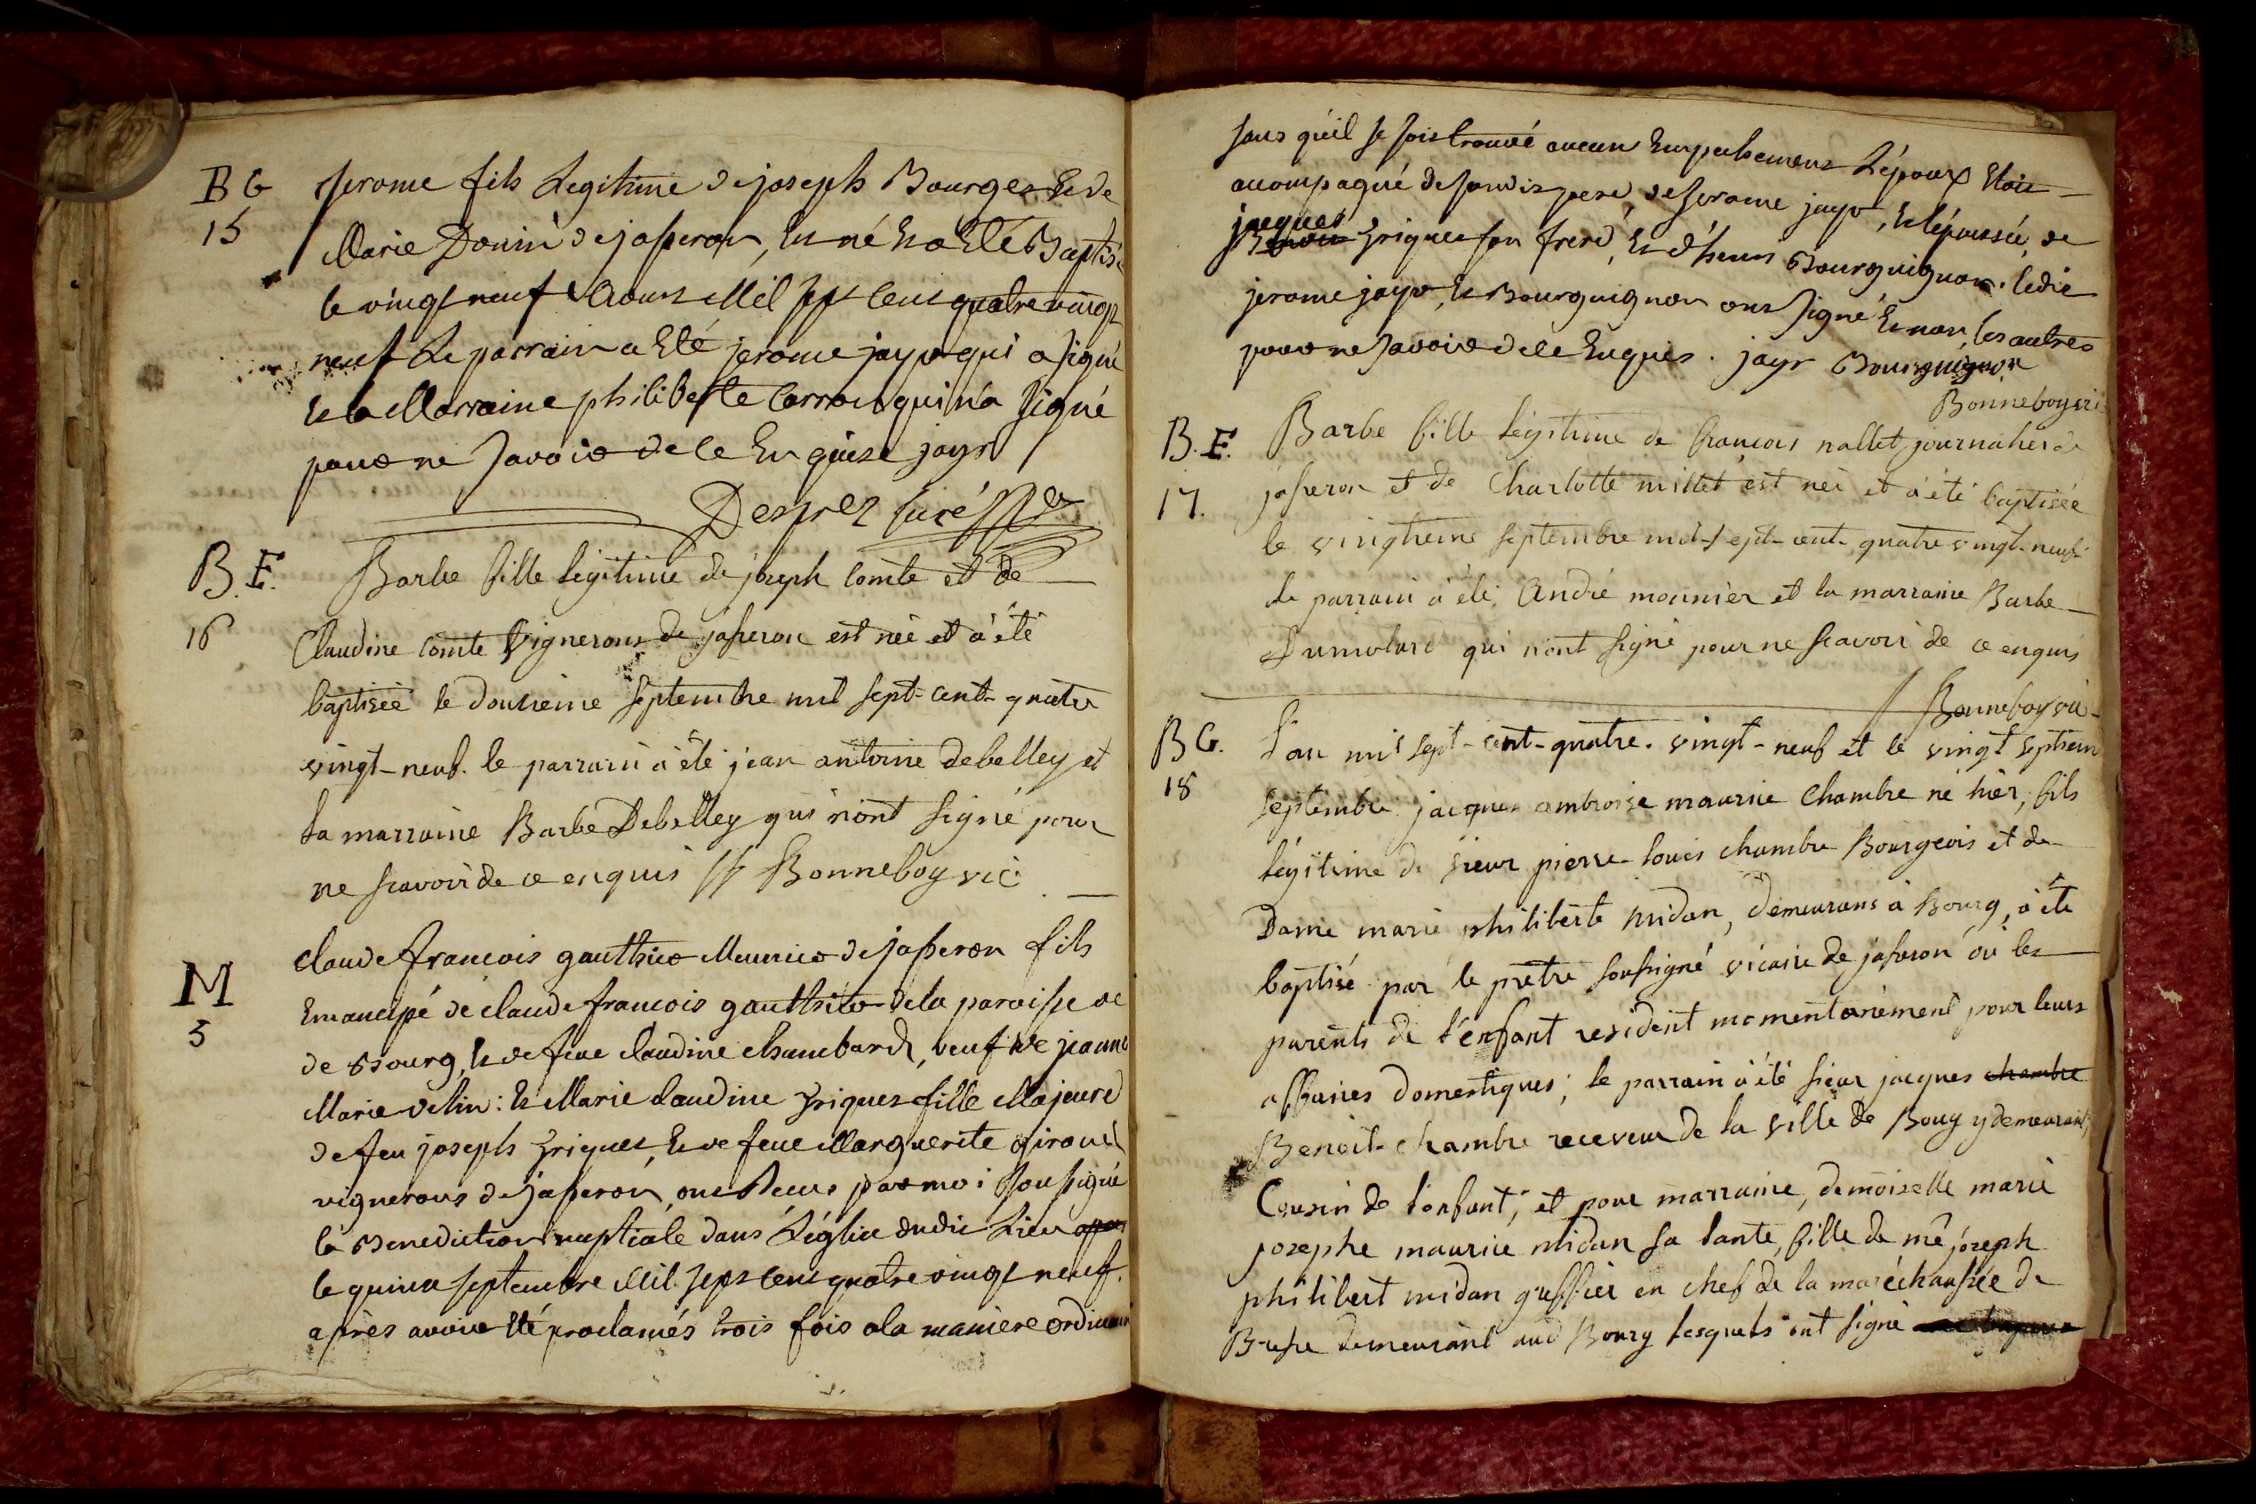 BG
15
Jerome fils Legitime de joseph Bourges Et de
Marie Donin de jasseron, Est né Et a Eté Baptisé
le vingt neuf Aoust Mil sept Cent quatre vingt
neuf Le parrain a Eté jerome jayr qui a signé
Et la Marraine philiberte Carron qui n'a signé
pour ne savoir de ce Enquise jayr
Desprez Curé
B.F.
16
Barbe fille legitime de joseph Comte et de
Claudine Comte Vignerons de jasseron est née et a été
baptisée le douzieme septembre mil sept-cent-quatre
vingt-neuf. le parrain a été jean antoine debelley et
la marraine Barbe Debelley qui n'ont signé pour
ne scavoir de ce enquis // Bonneboy vic:
M
5
claude françois gauthier Meunier de jasseron fils
Emancipé de claude françois gauthier de la paroisse de
de Bourg, Et de feue claudine chambard, veuf de jeanne
Marie velin: Et Marie claudine Griguer fille Majeure
de feu joseph Griguer, Et de feue Marguerite giroud
vignerons de jasseron, ont Receus par moi soussigné
la Benediction nuptiale dans L'église dudit Lieu
le quinze septembre Mil sept cent quatre vingt neuf.
après avoir Eté proclamés trois fois a la maniere ordinaire
sans qu'il se soit trouvé aucun Empechement L'époux Etoit
acompagné de son dit pere, de Jerome jayr, Et l'épousée, de
jacques Griguer son frere, Et d' Bourguignon. ledit
jerome jayr, Et Bourguignon ont signé Et non, les autres
pour ne savoir de ce Enquis. jayr Bourguignon
Bonneboy vic
B.F.
17.
Barbe fille legitime de francois nallet journalier de
jasseron et de Charlotte millet est née et a été baptisée
le vingtieme septembre mil-sept-cent-quatre vingt-neuf
Le parrain a été André mounier et la marraine Barbe
Dumolard qui n'ont signé pour ne scavoir de ce enquis
Bonneboy vic
BG.
18
L'an mil sept-cent-quatre-vingt-neuf et le vingt septieme
septembre jacques ambroise maurice Chambre né hier, fils
légitime de sieur pierre louis chambre Bourgeois et de
Dame marie philiberte Midan, demeurans à Bourg, a été
baptisé par le prêtre soussigné vicaire de jasseron où les
parents de l'enfant resident momentanément pour leurs
affaires domestiques; le parrain a été sieur jacques chambre
Benoit-chambre receveur de la ville de Bourg y demeurant,
Cousin de l'enfant, et pour marraine, demoiselle marie
josephe maurice Midan sa tante, fille de me joseph
philibert midan greffier en chef de la maréchaussée de
Bresse demeurant aud Bourg lesquels ont signé